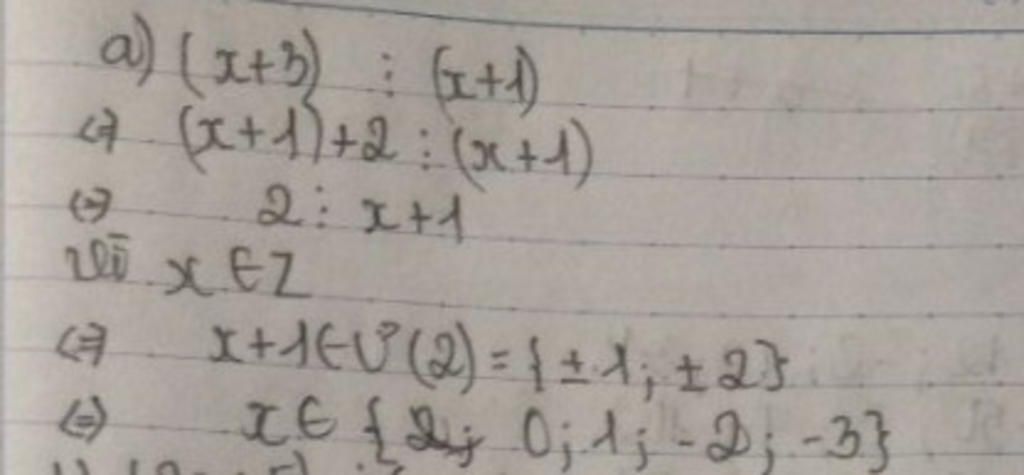 a) (x+3) ⋮ (x+1)
<=> (x+1)+2 ⋮ (x+1)
<=> 2 ⋮ x+1
Vì x ∈ Z
<=> x+1 ∈ Ư(2) = {±1; ±2}
<=> x ∈ { 0; 1; -2; -3}